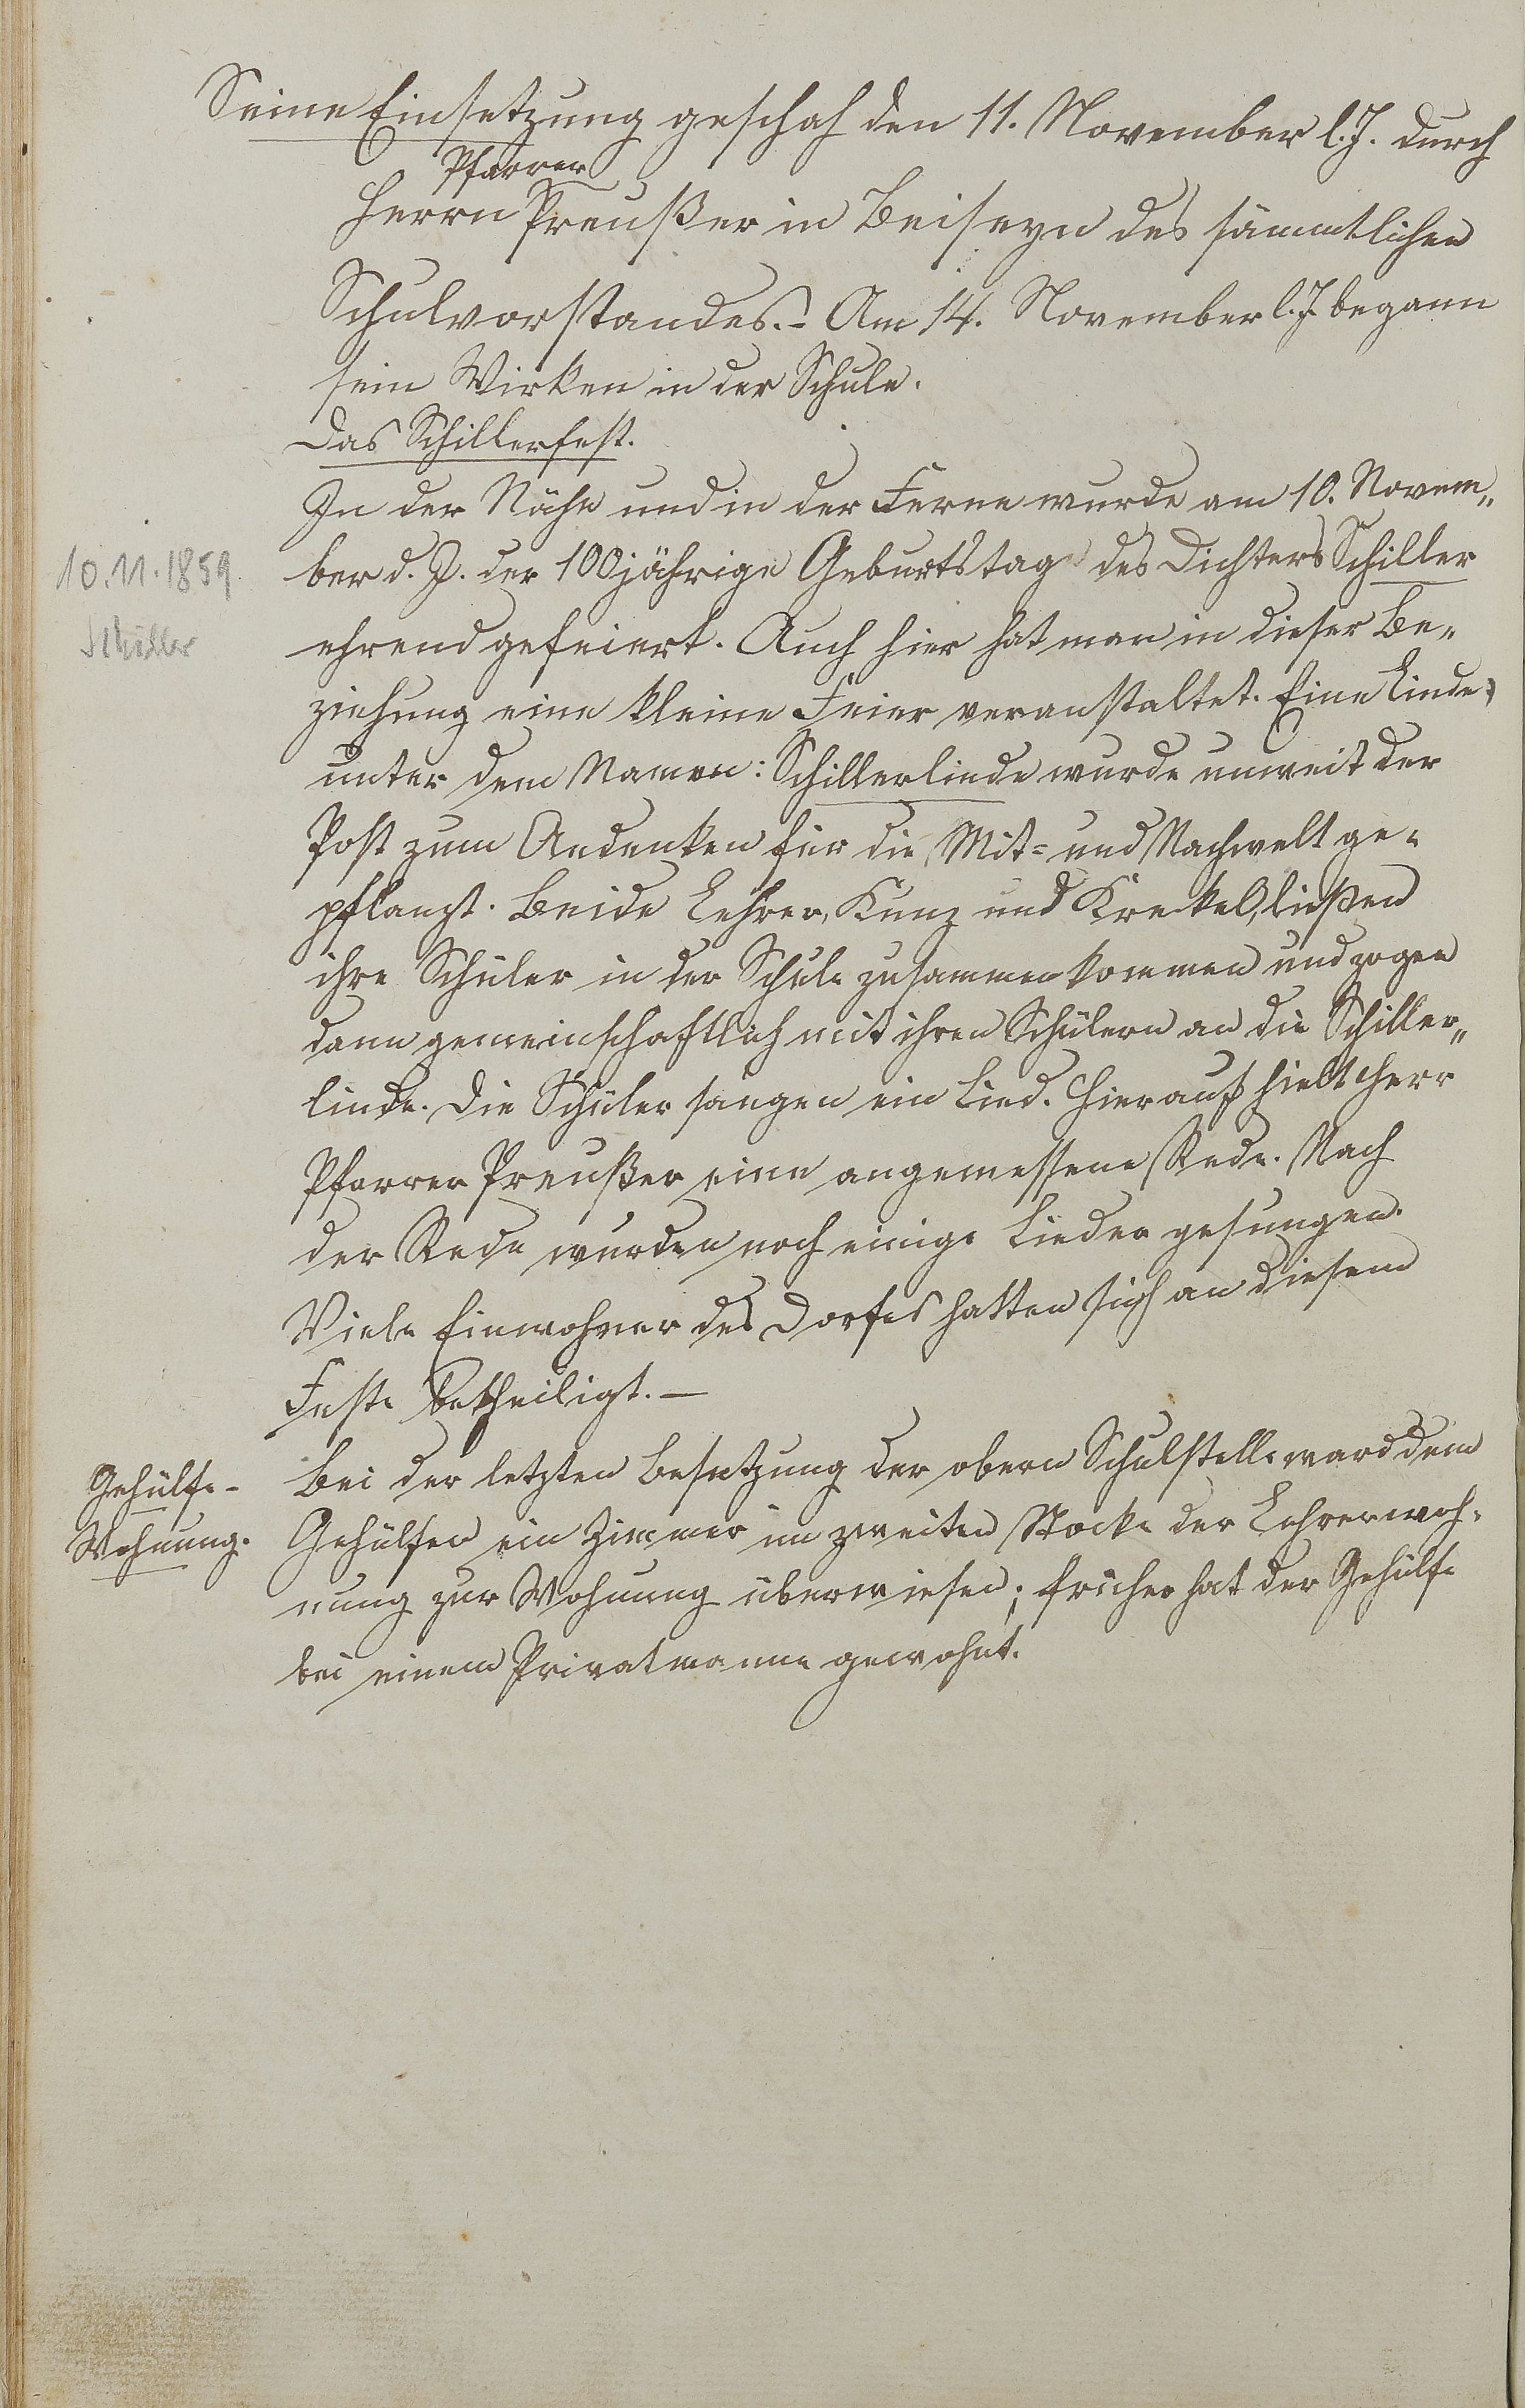 Seine Einsetzung geschah den 11. November l. J. durch
Pfarrer
Herrn Preußer in Beiseyn des sämmtlichen
Schulvorstandes.- Am 14. November l. J. begann
sein Wirken in der Schule.
Das Schillerfest.
In der Nähe und in der Ferne wurde am 10. Novem„
10.11.1859.
ber d. J. der 100jährige Geburtstag des Dichters Schiller
Schiller
ehrend gefeiert. Auch hier hat man in dieser Be„
ziehung eine kleine Feier veranstaltet. Eine Linde,
unter dem Namen: Schillerlinde wurde unweit der
Post zum Andenken für die Mit- und Nachwelt ge-
pflanzt. Beide Lehrer, Kunz und Krekel, ließen
ihre Schüler in der Schule zusammenkommen und zogen
dann gemeinschaftlich mit ihren Schülern an die Schiller„
linde. Die Schüler sangen ein Lied. Hierauf hielt Herr
Pfarrer Preußer eine angemessene Rede. Nach
der Rede wurden noch einige Lieder gesungen.
Viele Einwohner des Dorfes hatten sich an diesem
Feste betheiligt. —
Gehülfe-
Wohnung.
Bei der letzten Besetzung der obern Schulstelle ward dem
Gehülfen ein Zimmer im zweiten Stocke der Lehrerwoh-
nung zur Wohnung überwiesen; früher hat der Gehülfe
bei einem Privatmanne gewohnt.